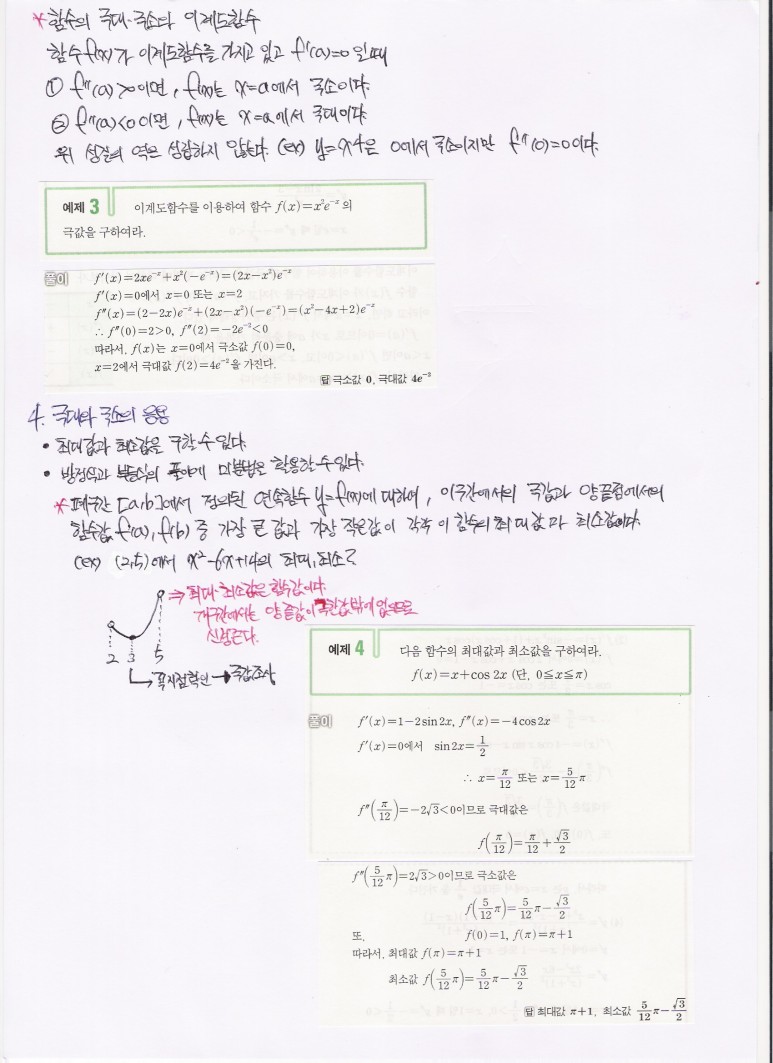 * 함수의 극대·극소와 이계도함수
함수 f(x)가 이계도함수를 가지고 있고 f'(a)=0 일때
① f''(a)>0이면, f(x)는 x=a에서 극소이다.
② f''(a)<0이면, f(x)는 x=a에서 극대이다.
위 성질의 역은 성립하지 않는다. (ex) y=x4은 0에서 극소이지만 f''(0)=0이다.
예제 3 이계도함수를 이용하여 함수 f(x)=x²e⁻ˣ의
극값을 구하여라.
풀이 f'(x)=2xe⁻ˣ+x²(-e⁻ˣ)=(2x-x²)e⁻ˣ
f'(x)=0에서 x=0 또는 x=2
f''(x)=(2-2x)e⁻ˣ+(2x-x²)(-e⁻ˣ)=(x²-4x+2)e⁻ˣ
∴ f''(0)=2>0, f''(2)=-2e⁻²<0
따라서, f(x)는 x=0에서 극소값 f(0)=0,
x=2에서 극대값 f(2)=4e⁻²을 가진다.
답 극소값 0, 극대값 4e⁻²
4. 극대와 극소의 응용
• 최대값과 최소값을 구할 수 있다.
• 방정식과 부등식의 풀이에 미분법을 활용할 수 있다.
* 폐구간 [a,b]에서 정의된 연속함수 y=f(x)에 대하여, 이 구간에서의 극값과 양 끝점에서의
함수값 f(a), f(b) 중 가장 큰 값과 가장 작은 값이 각각 이 함수의 최대값과 최소값이다.
(ex) (2,5)에서 x²-6x+14의 최대, 최소?
⇒ 최대·최소값은 함수값이다.
개구간에서는 양 끝값이 극한값밖에 없으므로
2 3 5
→ 꼭지점확인 → 극값조사
예제 4 다음 함수의 최대값과 최소값을 구하여라.
f(x)=x+cos 2x (단, 0≤x≤π)
풀이 f'(x)=1-2sin 2x, f''(x)=-4cos 2x
f'(x)=0에서 sin 2x=1/2
∴ x=π/12 또는 x=5/12π
f''(π/12)=-2√3<0이므로 극대값은
f(π/12)=π/12+√3/2
f''(5/12π)=2√3>0이므로 극소값은
f(5/12π)=5/12π-√3/2
또, f(0)=1, f(π)=π+1
따라서, 최대값 f(π)=π+1
최소값 f(5/12π)=5/12π-√3/2
답 최대값 π+1, 최소값 5/12π-√3/2